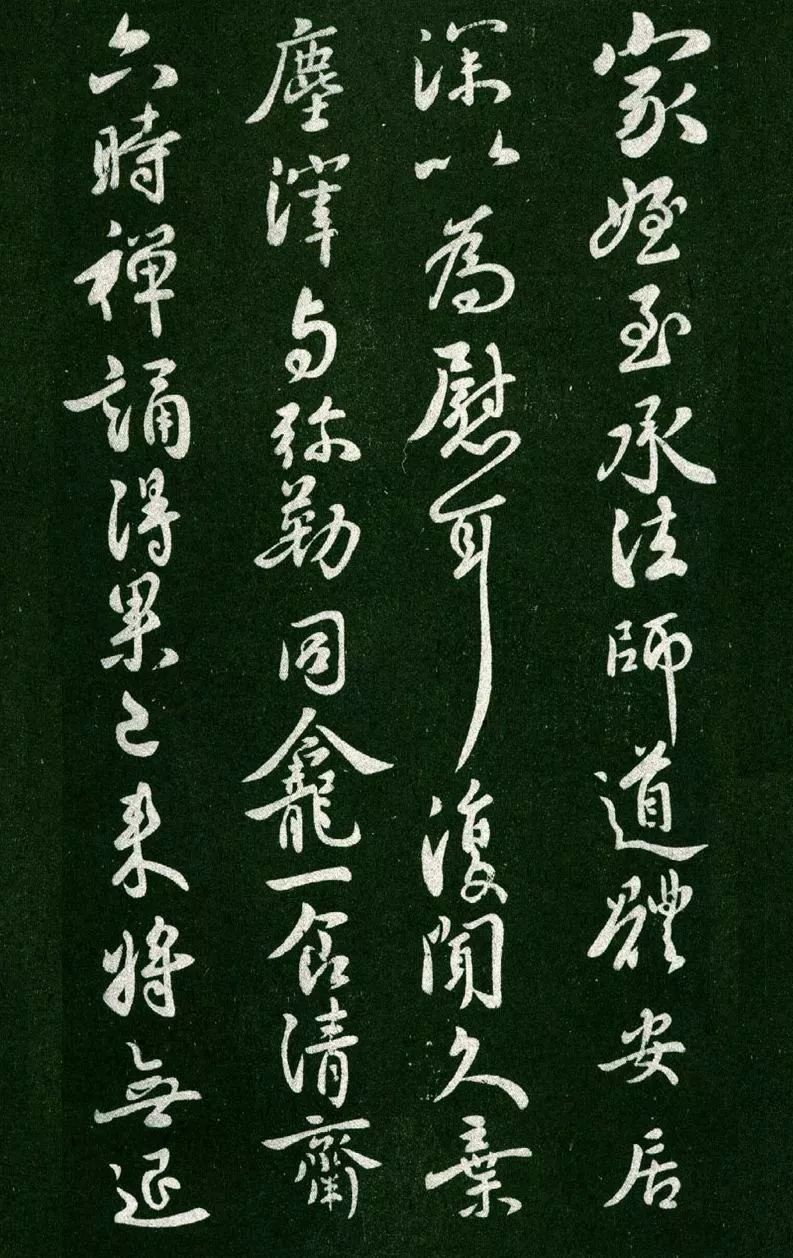 家姪至承法師道體安居
深以為慰耳復聞久棄
塵滓与弥勒同龕一食清齋
六時禪誦得果已来將無退